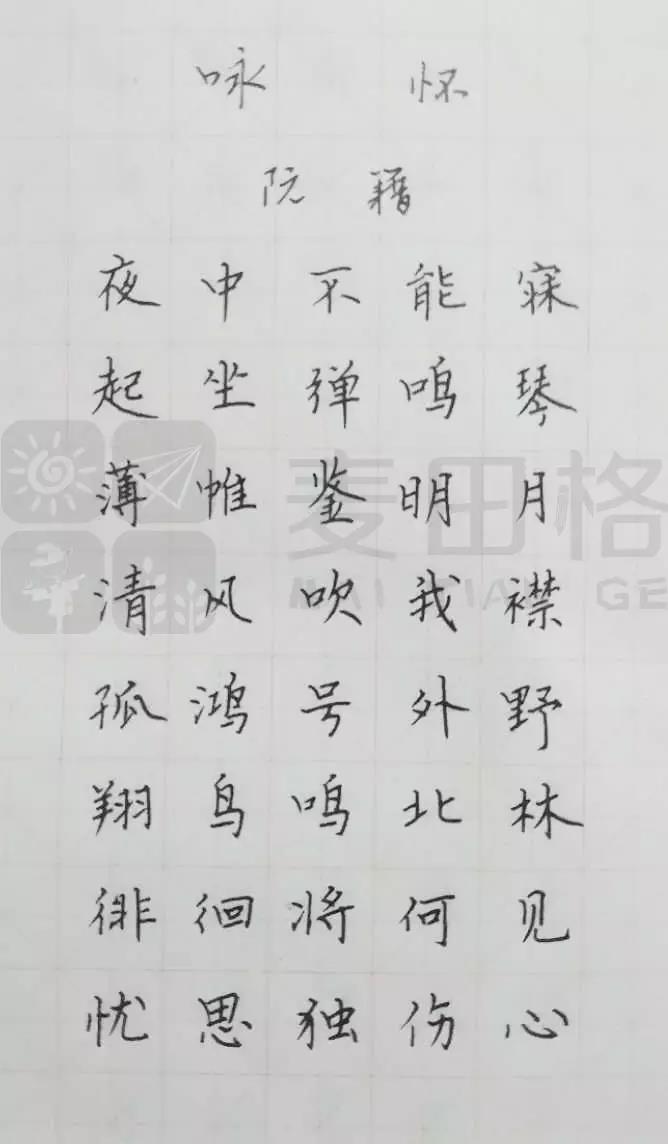 咏 怀
阮 籍
夜中不能寐
起坐弹鸣琴
薄帷鉴明月
清风吹我襟
孤鸿号外野
翔鸟鸣北林
徘徊将何见
忧思独伤心
麦田格
MAI TIAN GE